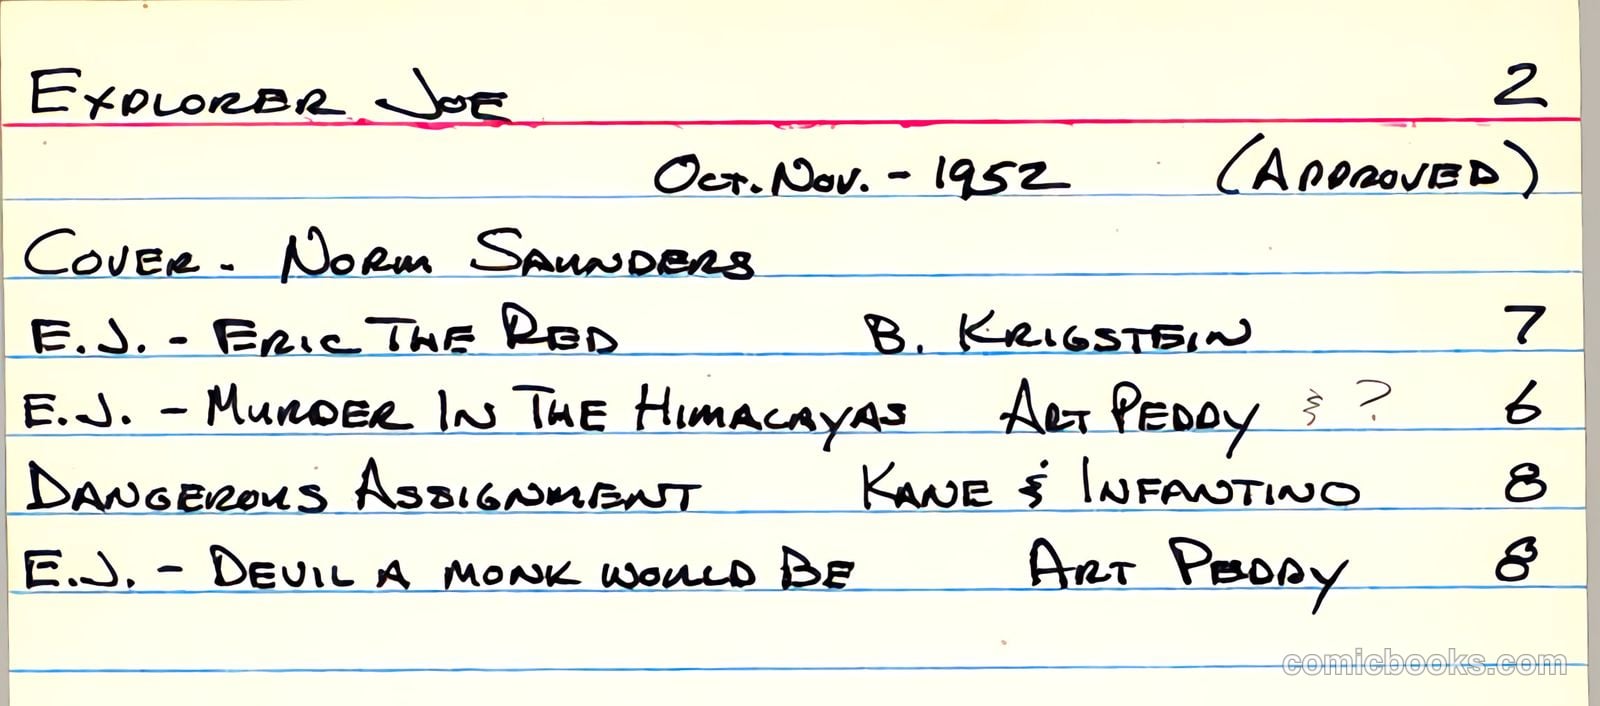 EXPLORER JOE 2
OCT. NOV. - 1952 (APPROVED)
COVER - NORM SAUNDERS
E.J. - ERIC THE RED B. KRIGSTEIN 7
E.J. - MURDER IN THE HIMALAYAS ART PEDDY & ? 6
DANGEROUS ASSIGNMENT KANE & INFANTINO 8
E.J. - DEVIL A MONK WOULD BE ART PEDDY 8
comicbooks.com